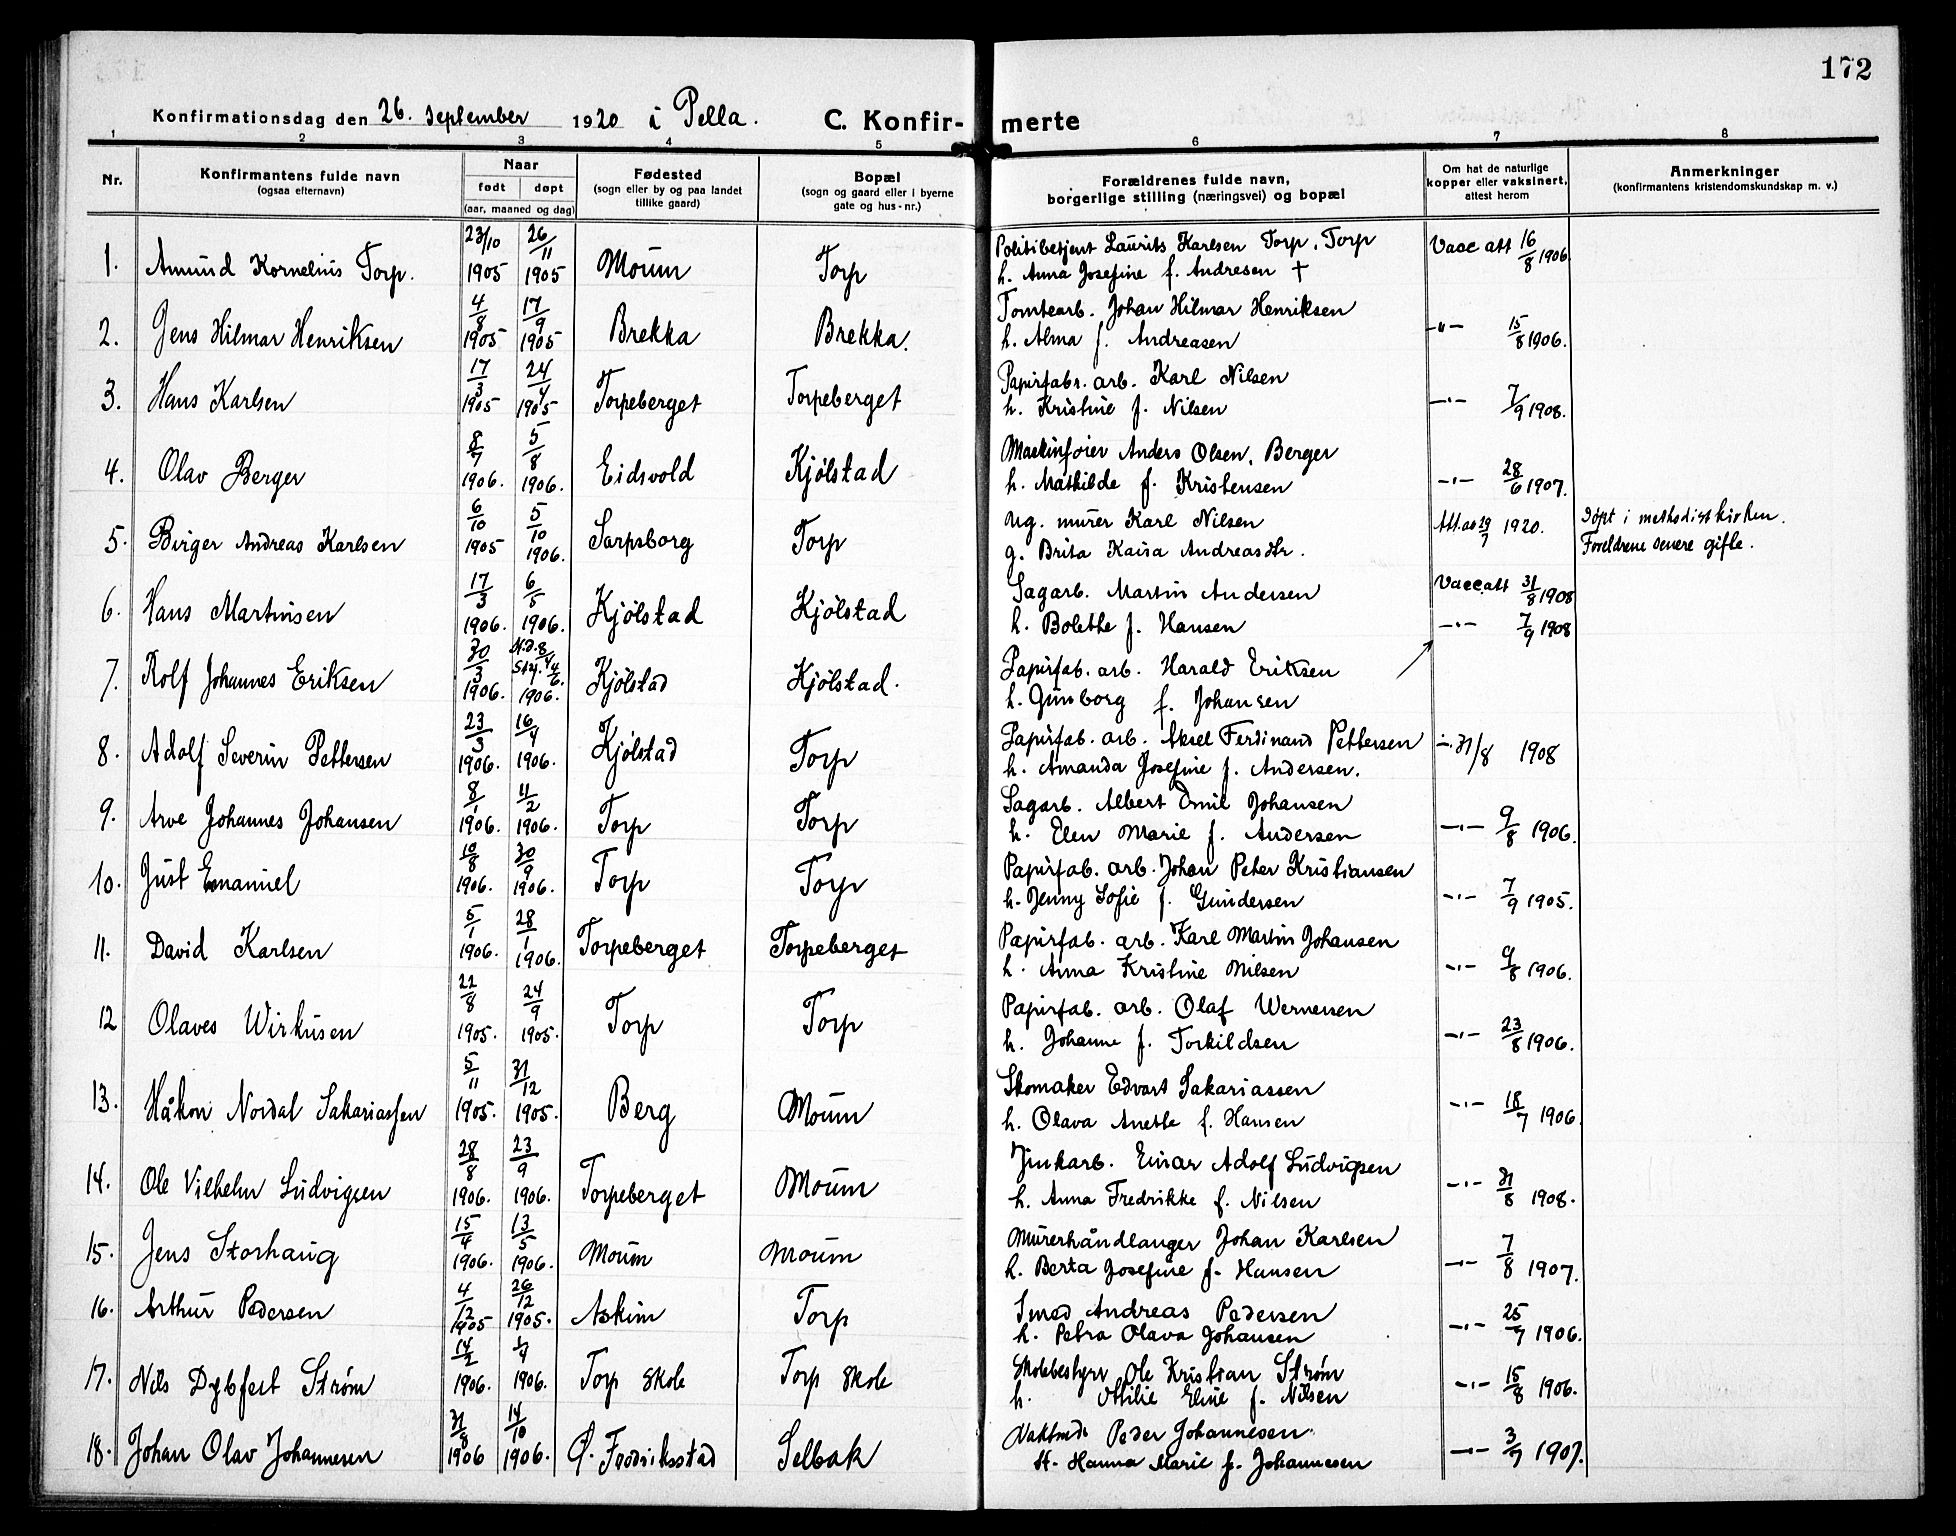 172
Konfirmationsdag den 26. September 1920 i Pella.
C. Konfir- merte
1 2 3 4 5 6 7 8
Nr.
Konfirmantens fulde navn
(ogsaa efternavn)
Naar
født døpt
(aar, maaned og dag)
Fødested
(sogn eller by og paa landet
tillike gaard)
Bopæl
(sogn og gaard eller i byerne
gate og hus-nr.)
Forældrenes fulde navn,
borgerlige stilling (næringsvei) og bopæl
Om hat de naturlige
kopper eller vaksinert,
attest herom
Anmerkninger
(konfirmantens kristendomskundskap m. v.)
1. Amund Kornelius Torp. 23/10 1905 26/11 1905 Moum Torp Politibetjent Laurits Karlsen Torp, Torp Vacc att 16/8 1906
h. Anna Josefine f. Andresen †
2. Jens Hilmar Henriksen 4/8 1905 17/9 1905 Brekka Brekka. Tomtearb. Johan Hilmar Henriksen
h. Alma f. Andreasen -"- 15/8 1906.
3. Hans Karlsen 17/3 1905 24/4 1905 Torpeberget Torpeberget Papirfabr. arb. Karl Nilsen
h. Kristine f. Nilsen -"- 7/9 1908.
4. Olav Berger 8/7 1906. 5/8 1906. Eidsvold Kjølstad Maskinfører Anders Olsen, Berger
h. Mathilde f. Kristensen -"- 28/6 1907.
5. Birger Andreas Karlsen 6/10 1905 5/10 1906. Sarpsborg Torp Ug. murer Karl Nilsen 29/7 1920. Døpt i methodistkirken.
g. Brita Kaisa Andreasdtr. Foreldrene senere gifte.
6. Hans Martinsen 17/3 1906. 6/5 1906. Kjølstad Kjølstad Sagarb. Martin Andersen Vacc.att 31/8 1908
h. Bolethe f. Hansen -"- 7/9 1908
7. Rolf Johannes Eriksen 30/3 1906. 8/4 1906. Kjølstad Kjølstad. Papirfab. arb. Harald Eriksen
h. Gunborg f. Johansen
8. Adolf Severin Pettersen 23/3 1906. 16/4 1906. Kjølstad Torp Papirfab. arb. Aksel Ferdinand Pettersen -"- 31/8 1908
h. Amanda Josefine f. Andersen.
9. Arve Johannes Johansen 8/1 1906. 11/2 1906. Torp Torp Sagarb. Albert Emil Johansen
h. Elen Marie f. Andersen -"- 9/8 1906.
10. Just Emanuel 10/8 1906. 30/9 1906. Torp Torp Papirfab. arb. Johan Peter Kristiansen
h. Jenny Sofie f. Gundersen -"- 7/9 1905.
11. David Karlsen 5/1 1906. 28/1 1906. Torpeberget Torpeberget Papirfab. arb. Karl Martin Johansen
h. Anna Kristine Nilsen -"- 9/8 1906.
12 Olaves 22/8 1905. 24/9 1905. Torp Torp Papirfab. arb. Olaf Wernersen
h. Johanne f. Torkildsen -"- 23/8 1906.
13. Håkon Nordal Sakariassen 5/11 1905. 31/12 1905. Berg Moum Skomaker Edvart Sakariassen
h. Olava Anette f. Hansen -"- 18/7 1906.
14. Ole Vilhelm Ludvigsen 28/8 1906. 23/9 1906. Torpeberget Moum Einar Adolf Ludvigsen
h. Anna Fredrikke f. Nilsen -"- 31/8 1908.
15. Jens Storhaug 15/4 1906. 13/5 1906. Moum Moum Murerhåndlanger Johan Karlsen
h. Berta Josefine f. Hansen -"- 7/8 1907.
16. Arthur Pedersen 4/12 1905 26/12 1905. Askim Torp Smed Andreas Pedersen
h. Petra Olava Johansen -"- 25/7 1906.
17. Nils Dybfest Strøm 14/2 1906. 1/4 1906. Torp Skole Torp Skole Skolebestyrer Ole Kristian Strøm
h. Othilie Eline f. Nilsen -"- 15/8 1906.
18. Johan Olav Johannesen 31/8 1906 14/10 1906. Ø. Fredriksstad Selbak Peder Johannesen
H. Hanna Marie f. Johannesen -"- 3/7 1907.